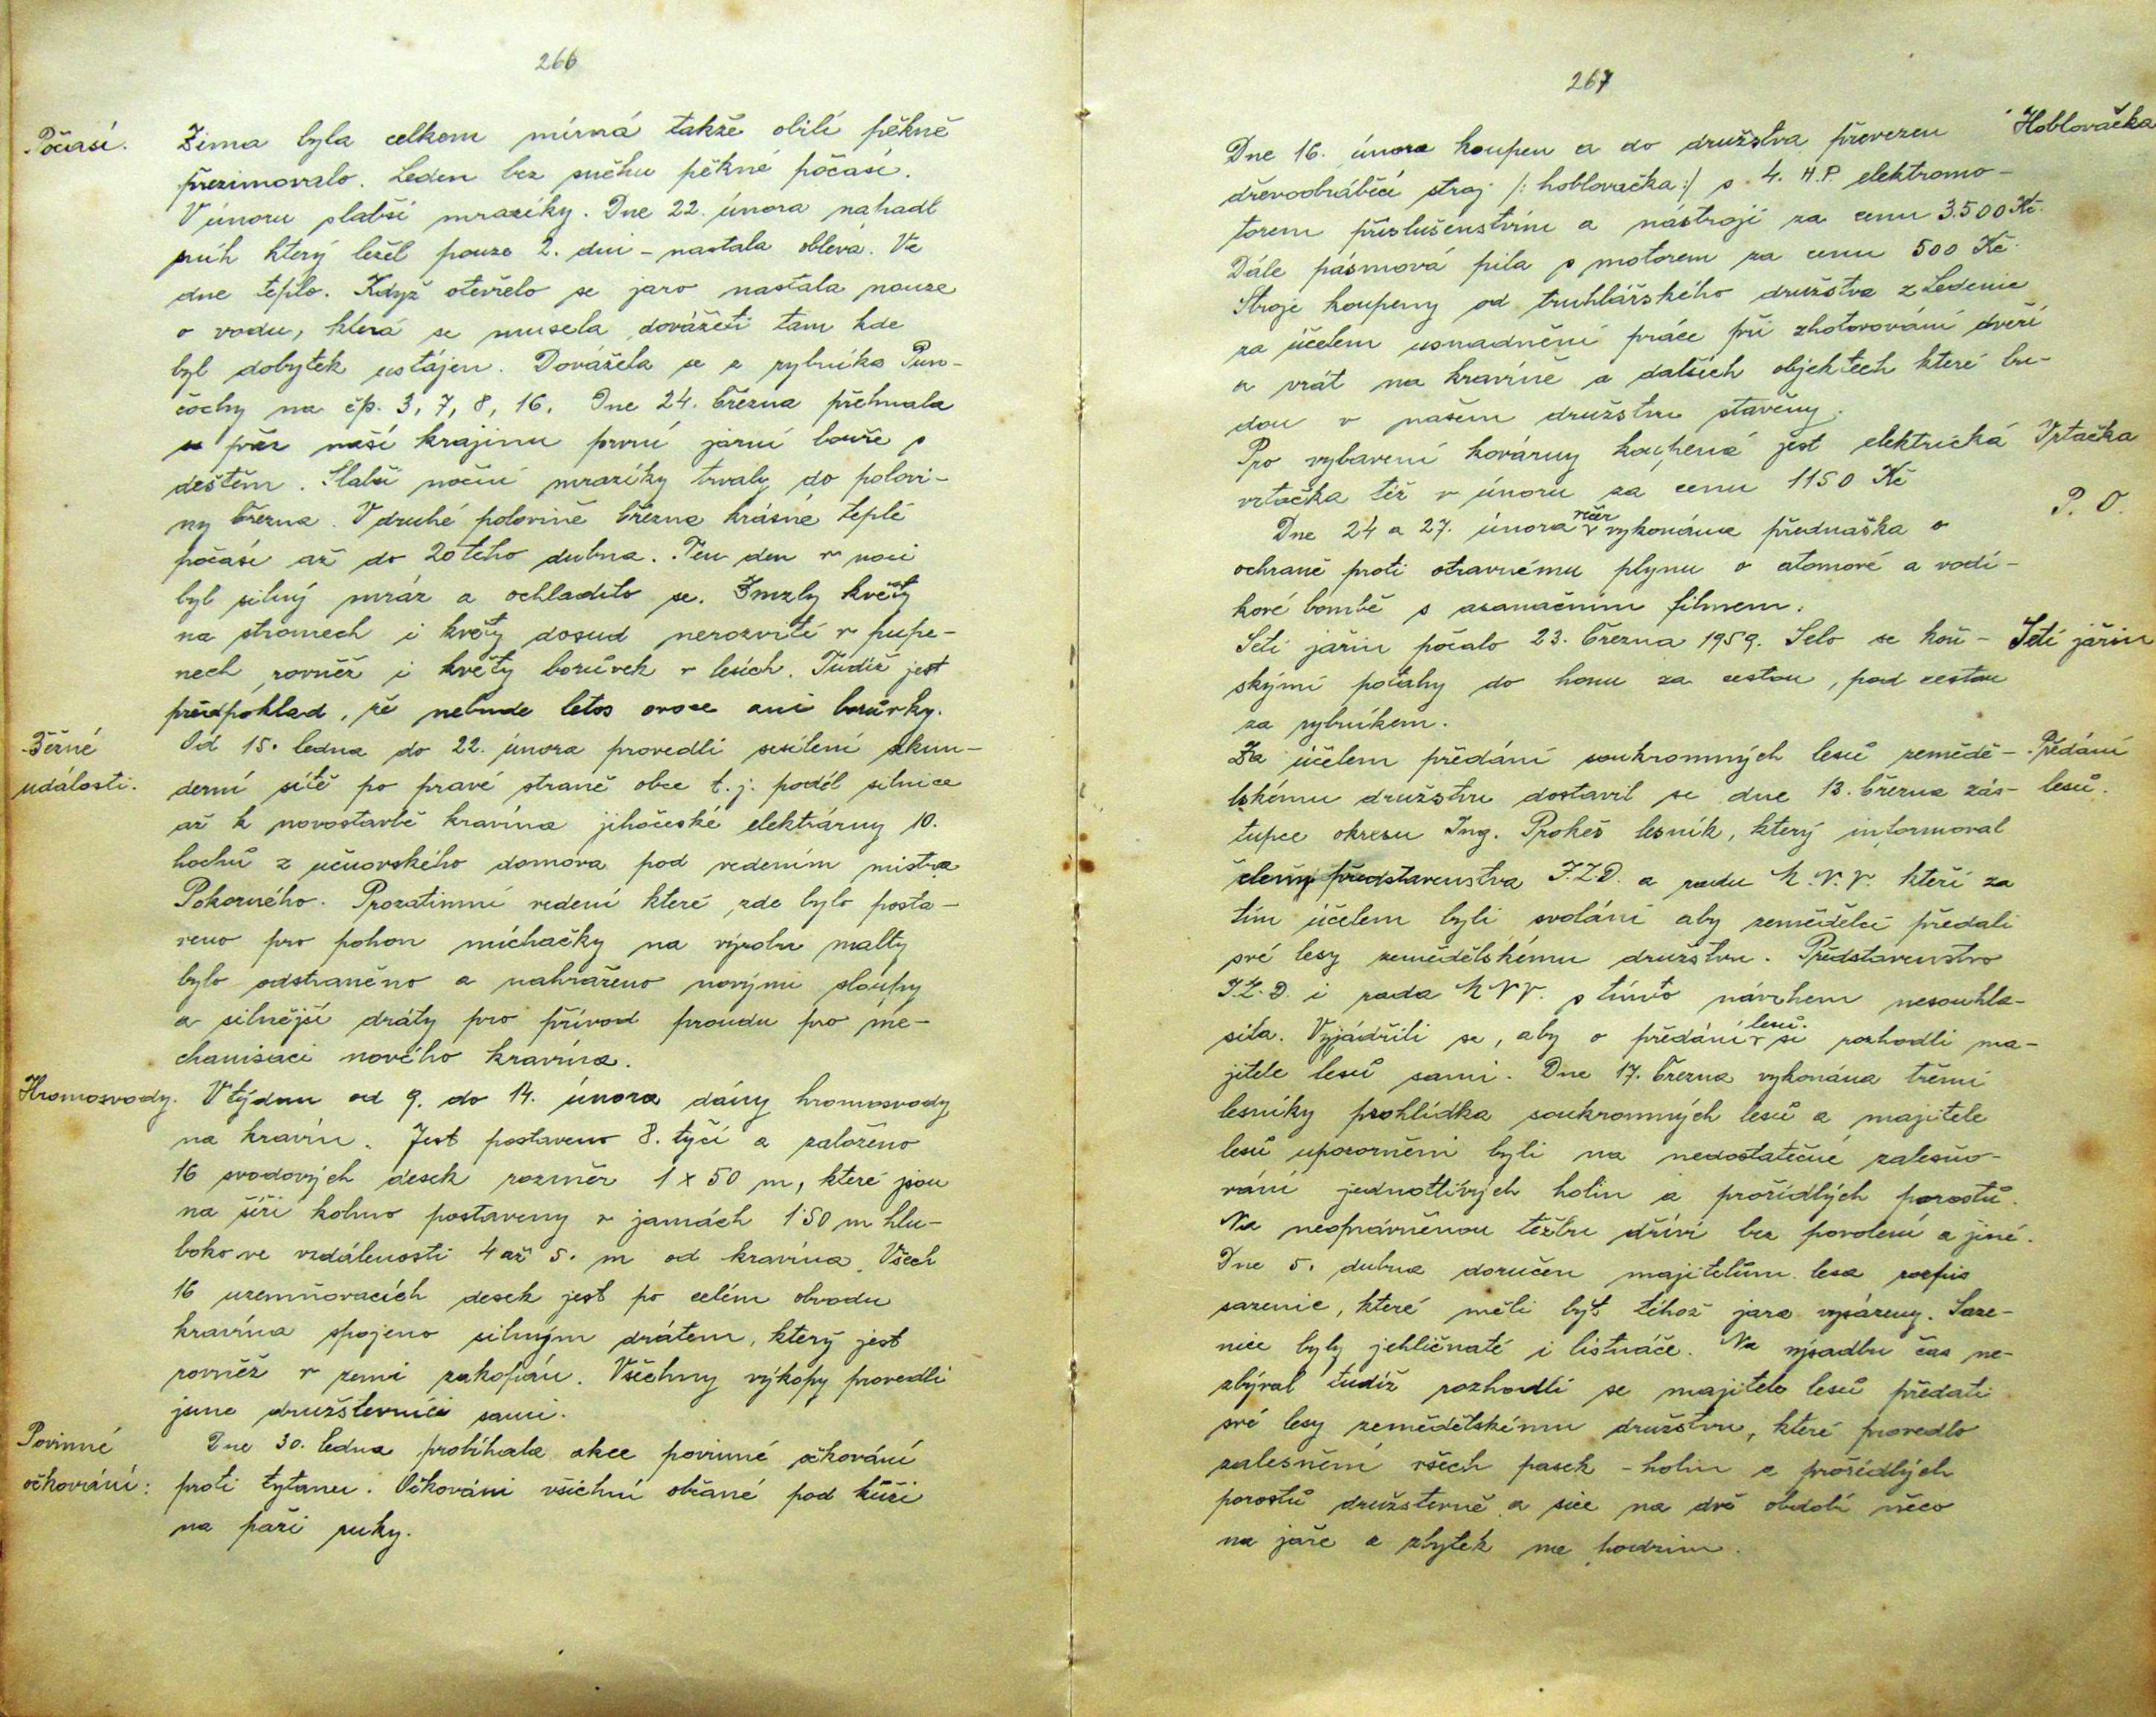 266
Počasí. Zima byla celkem mírná takže obilí pěkně
přezimovalo. Leden bez sněhu pěkné počasí.
V únoru slabší mrazíky. Dne 22. února nahadl
sníh který ležel pouze 2. dni - nastala obleva. Ve
dne teplo. Když otevřelo se jaro nastala nouze
o vodu, která se musela dovážeti tam kde
byl dobytek ustájen. Dovážela se z rybníka Pun-
čochy na čp. 3, 7, 8, 16. Dne 24. března přehnala
se přes naší krajinu první jarní bouře s
deštěm. Slabší noční mrazíky trvaly do polovi-
ny března. V druhé polovině března krásné teplé
počasí až do 20tého dubna. Ten den v noci
byl silný mráz a ochladilo se. Zmrzly květy
na stromech i květy dosud nerozvité v pupe-
nech, rovněž i květy borůvek v lesích. Tudíž jest
předpoklad, že nebude letos ovoce ani borůvky.
Běžné Od 15. ledna do 22. února provedli sesílení sekun-
události. derní sítě po pravé straně obce t. j. podél silnice
až k novostavbě kravína jihočeské elektrárny 10.
hochů z učňovského domova pod vedením mistra
Pokorného. Prozatimní vedení které zde bylo posta-
veno pro pohon míchačky na výrobu malty
bylo odstraněno a nahraženo novými sloupy
a silnější dráty pro přívod proudu pro me-
chanisaci nového kravína.
Hromosvody. V týdnu od 9. do 14. února dány hromosvody
na kravín. Jest postaveno 8. tyčí a založeno
16 svodových desek rozměr 1 x 50 m, které jsou
na šíři kolmo postaveny v jamách 1'50 m hlu-
boko ve vzdálenosti 4 až 5. m od kravína. Všech
16 uzemňovacích desek jest po celém obvodu
kravína spojeno silným drátem, který jest
rovněž v zemi zakopán. Všechny výkopy provedli
jsme družstevníci sami.
Povinné Dne 30. ledna probíhala akce povinné očkování
očkování: proti tytanu. Očkováni všichni občané pod kůži
na paži ruky.
267
Dne 16. února koupen a do družstva převezen Hoblovačka
dřevoobráběcí stroj /: hoblovačka :/ s 4. H.P. elektromo-
torem příslušenstvím a nástroji za cenu 3.500 Kč.
Dále pásmová pila s motorem za cenu 500 Kč.
Stroje koupeny od truhlářského družstva z Ledenic
za účelem usnadnění práce při zhotovování dveří
a vrát na kravíně a dalších objektech které bu-
dou v našem družstvu stavěny.
Pro vybavení kovárny koupená jest elektrická Vrtačka
vrtačka též v únoru za cenu 1150 Kč
Dne 24 a 27. února večer vykonána přednáška o P. O.
ochraně proti otravnému plynu o atomové a vodí-
kové bombě s asanačním filmem.
Setí jařin počalo 23. března 1959. Selo se koň- Setí jařin
skými potahy do honu za cestou, pod cestou
za rybníkem.
Za účelem předání soukromných lesů zemědě- Předání
lskému družstvu dostavil se dne 13. března zás- lesů.
tupce okresu Ing. Prokeš lesník, který informoval
členy představenstva J.Z.D. a radu M.N.V. kteří za
tím účelem byli svoláni aby zemědělci předali
své lesy zemědělskému družstvu. Představenstvo
J.Z.D. i rada M N V. s tímto návrhem nesouhla-
sila. Vyjádřili se, aby o předání lesů. si rozhodli ma-
jitele lesů sami. Dne 17. března vykonána třemi
lesníky prohlídka soukromných lesů a majitele
lesů upozorněni byli na nedostatečné zalesňo-
vání jednotlivých holin a prořídlých porostů.
Na neoprávněnou těžbu dříví bez povolení a jiné.
Dne 5. dubna doručen majitelům lesa rozpis
sazenic, které měli být téhož jara vysázeny. Saze-
nice byly jehličnaté i listnáče. Na výsadbu čas ne-
zbýval tudíž rozhodli se majitele lesů předati
své lesy zemědělskému družstvu, které provedlo
zalesnění všech pasek - holin a prořídlých
porostů družstevně a sice na dvě období něco
na jaře a zbytek na podzim.